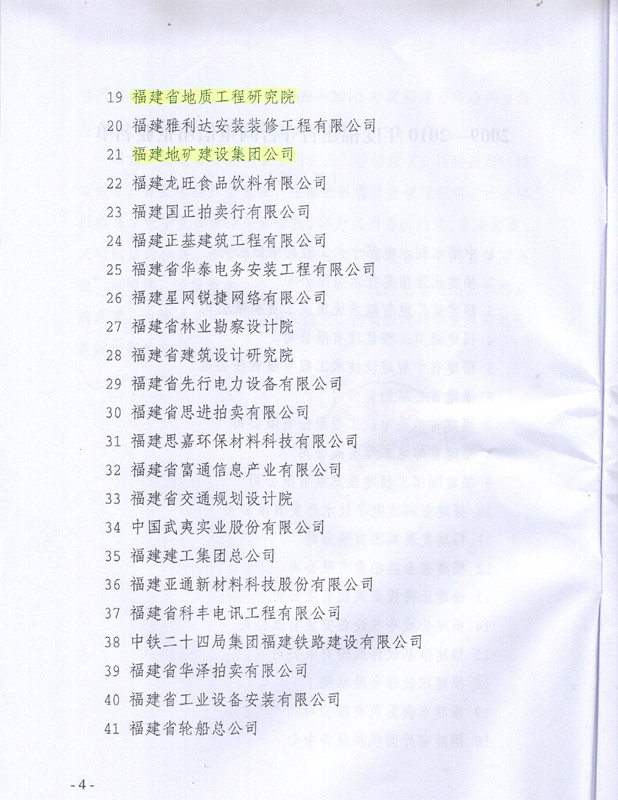 19 福建省地质工程研究院
20 福建雅利达安装装修工程有限公司
21 福建地矿建设集团公司
22 福建龙旺食品饮料有限公司
23 福建国正拍卖行有限公司
24 福建正基建筑工程有限公司
25 福建省华泰电务安装工程有限公司
26 福建星网锐捷网络有限公司
27 福建省林业勘察设计院
28 福建省建筑设计研究院
29 福建省先行电力设备有限公司
30 福建省思进拍卖有限公司
31 福建思嘉环保材料科技有限公司
32 福建省富通信息产业有限公司
33 福建省交通规划设计院
34 中国武夷实业股份有限公司
35 福建建工集团总公司
36 福建亚通新材料科技股份有限公司
37 福建省科丰电讯工程有限公司
38 中铁二十四局集团福建铁路建设有限公司
39 福建省华泽拍卖有限公司
40 福建省工业设备安装有限公司
41 福建省轮船总公司
- 4 -